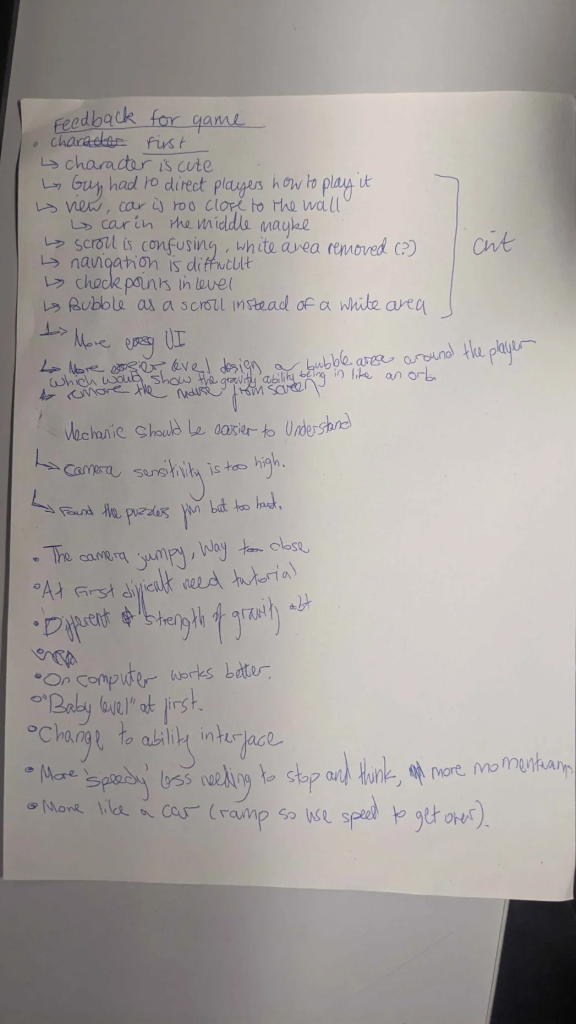 Feedback for game
First
↳ character is cute
↳ Guy had to direct players how to play it
↳ view, car is too close to the wall
↳ car in the middle maybe
↳ scroll is confusing, white area removed (?)
↳ navigation is difficult
↳ checkpoints in level
↳ Bubble as a scroll instead of a white area
↳ More easy UI
↳ More easier level design a bubble area around the player
which would show the gravity ability being in like an orb.
↳ remove the mouse from screen
Mechanic should be easier to understand
↳ Camera sensitivity is too high.
↳ Found the puzzles fun but too hard.
• The camera jumpy, way too close
• At first difficult need tutorial
• Different strength of gravity
• On computer works better.
• "Baby level" at first.
• Change to ability interface
• More 'speedy' less needing to stop and think, more momentum
• More like a car (ramp so use speed to get over).